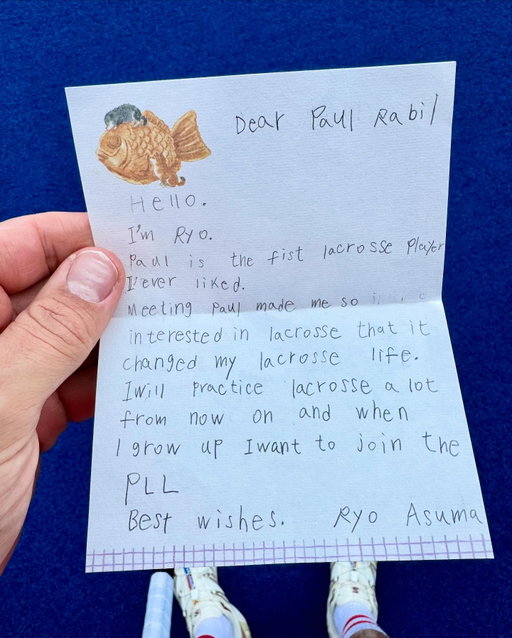 Dear Paul Rabil
Hello.
I'm Ryo.
Paul is the fist lacrosse Player
I'ever liked.
Meeting Paul made me so
interested in lacrosse that it
changed my lacrosse life.
I will Practice lacrosse a lot
from now on and when
I grow up I want to join the
PLL
Best wishes. Ryo Asuma